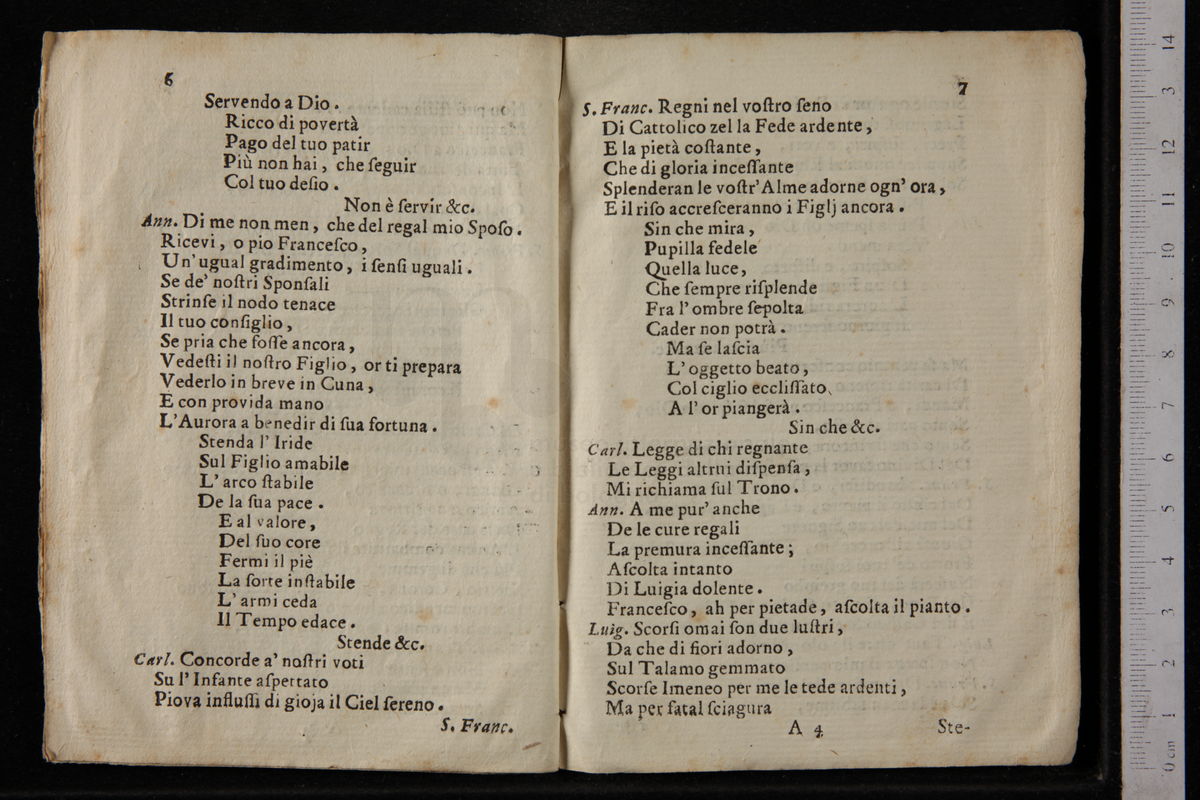 6
Servendo a Dio .
Ricco di povertà
Pago del tuo patir
Più non hai , che ſeguir
Col tuo deſio .
Non è ſervir &c.
Ann. Di me non men , che del regal mio Spoſo .
Ricevi , o pio Franceſco ,
Un' ugual gradimento , i ſenſi uguali .
Se de' noſtri Sponſali
Strinſe il nodo tenace
Il tuo conſiglio ,
Se pria che foſſe ancora ,
Vedeſti il noſtro Figlio , or ti prepara
Vederlo in breve in Cuna ,
E con provida mano
L'Aurora a benedir di ſua fortuna .
Stenda l' Iride
Sul Figlio amabile
L' arco ſtabile
De la ſua pace .
E al valore ,
Del ſuo core
Fermi il piè
La ſorte inſtabile
L' armi ceda
Il Tempo edace .
Stende &c.
Carl. Concorde a' noſtri voti
Su l' Infante aſpettato
Piova influſſi di gioja il Ciel ſereno .
S. Franc.
7
S. Franc. Regni nel voſtro ſeno
Di Cattolico zel la Fede ardente ,
E la pietà coſtante ,
Che di gloria inceſſante
Splenderan le voſtr' Alme adorne ogn' ora ,
E il riſo accreſceranno i Figlj ancora .
Sin che mira ,
Pupilla fedele
Quella luce ,
Che ſempre riſplende
Fra l' ombre ſepolta
Cader non potrà .
Ma ſe laſcia
L' oggetto beato ,
Col ciglio eccliſſato
A l' or piangerà .
Sin che &c.
Carl. Legge di chi regnante
Le Leggi altrui diſpenſa ,
Mi richiama ſul Trono .
Ann. A me pur' anche
De le cure regali
La premura inceſſante ;
Aſcolta intanto
Di Luigia dolente .
Franceſco , ah per pietade , aſcolta il pianto .
Luig. Scorſi omai ſon due luſtri ,
Da che di fiori adorno ,
Sul Talamo gemmato
Scorſe Imeneo per me le tede ardenti ,
Ma per fatal ſciagura
A 4 Ste-
0 cm 1 2 3 4 5 6 7 8 9 10 11 12 3 14